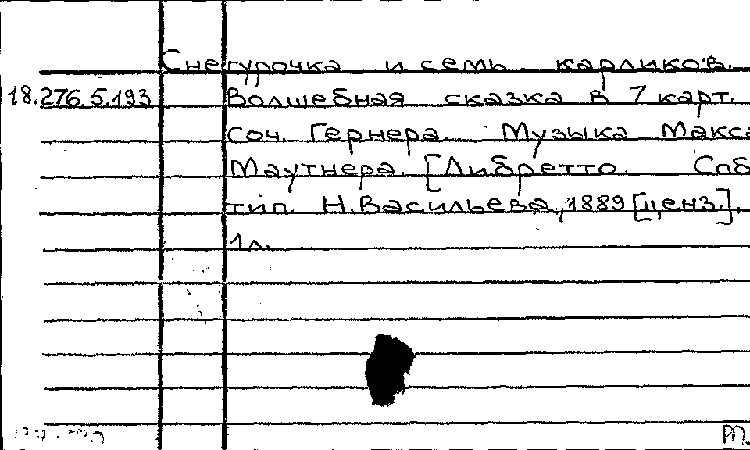 Снегурочка и семь карликов.
18.276.5.193 Волшебная сказка в 7 карт.
соч. Гернера. Музыка Макса
Маутнера. [Либретто. Спб
тип. Н. Васильева, 1889 [ценз.].
1л.